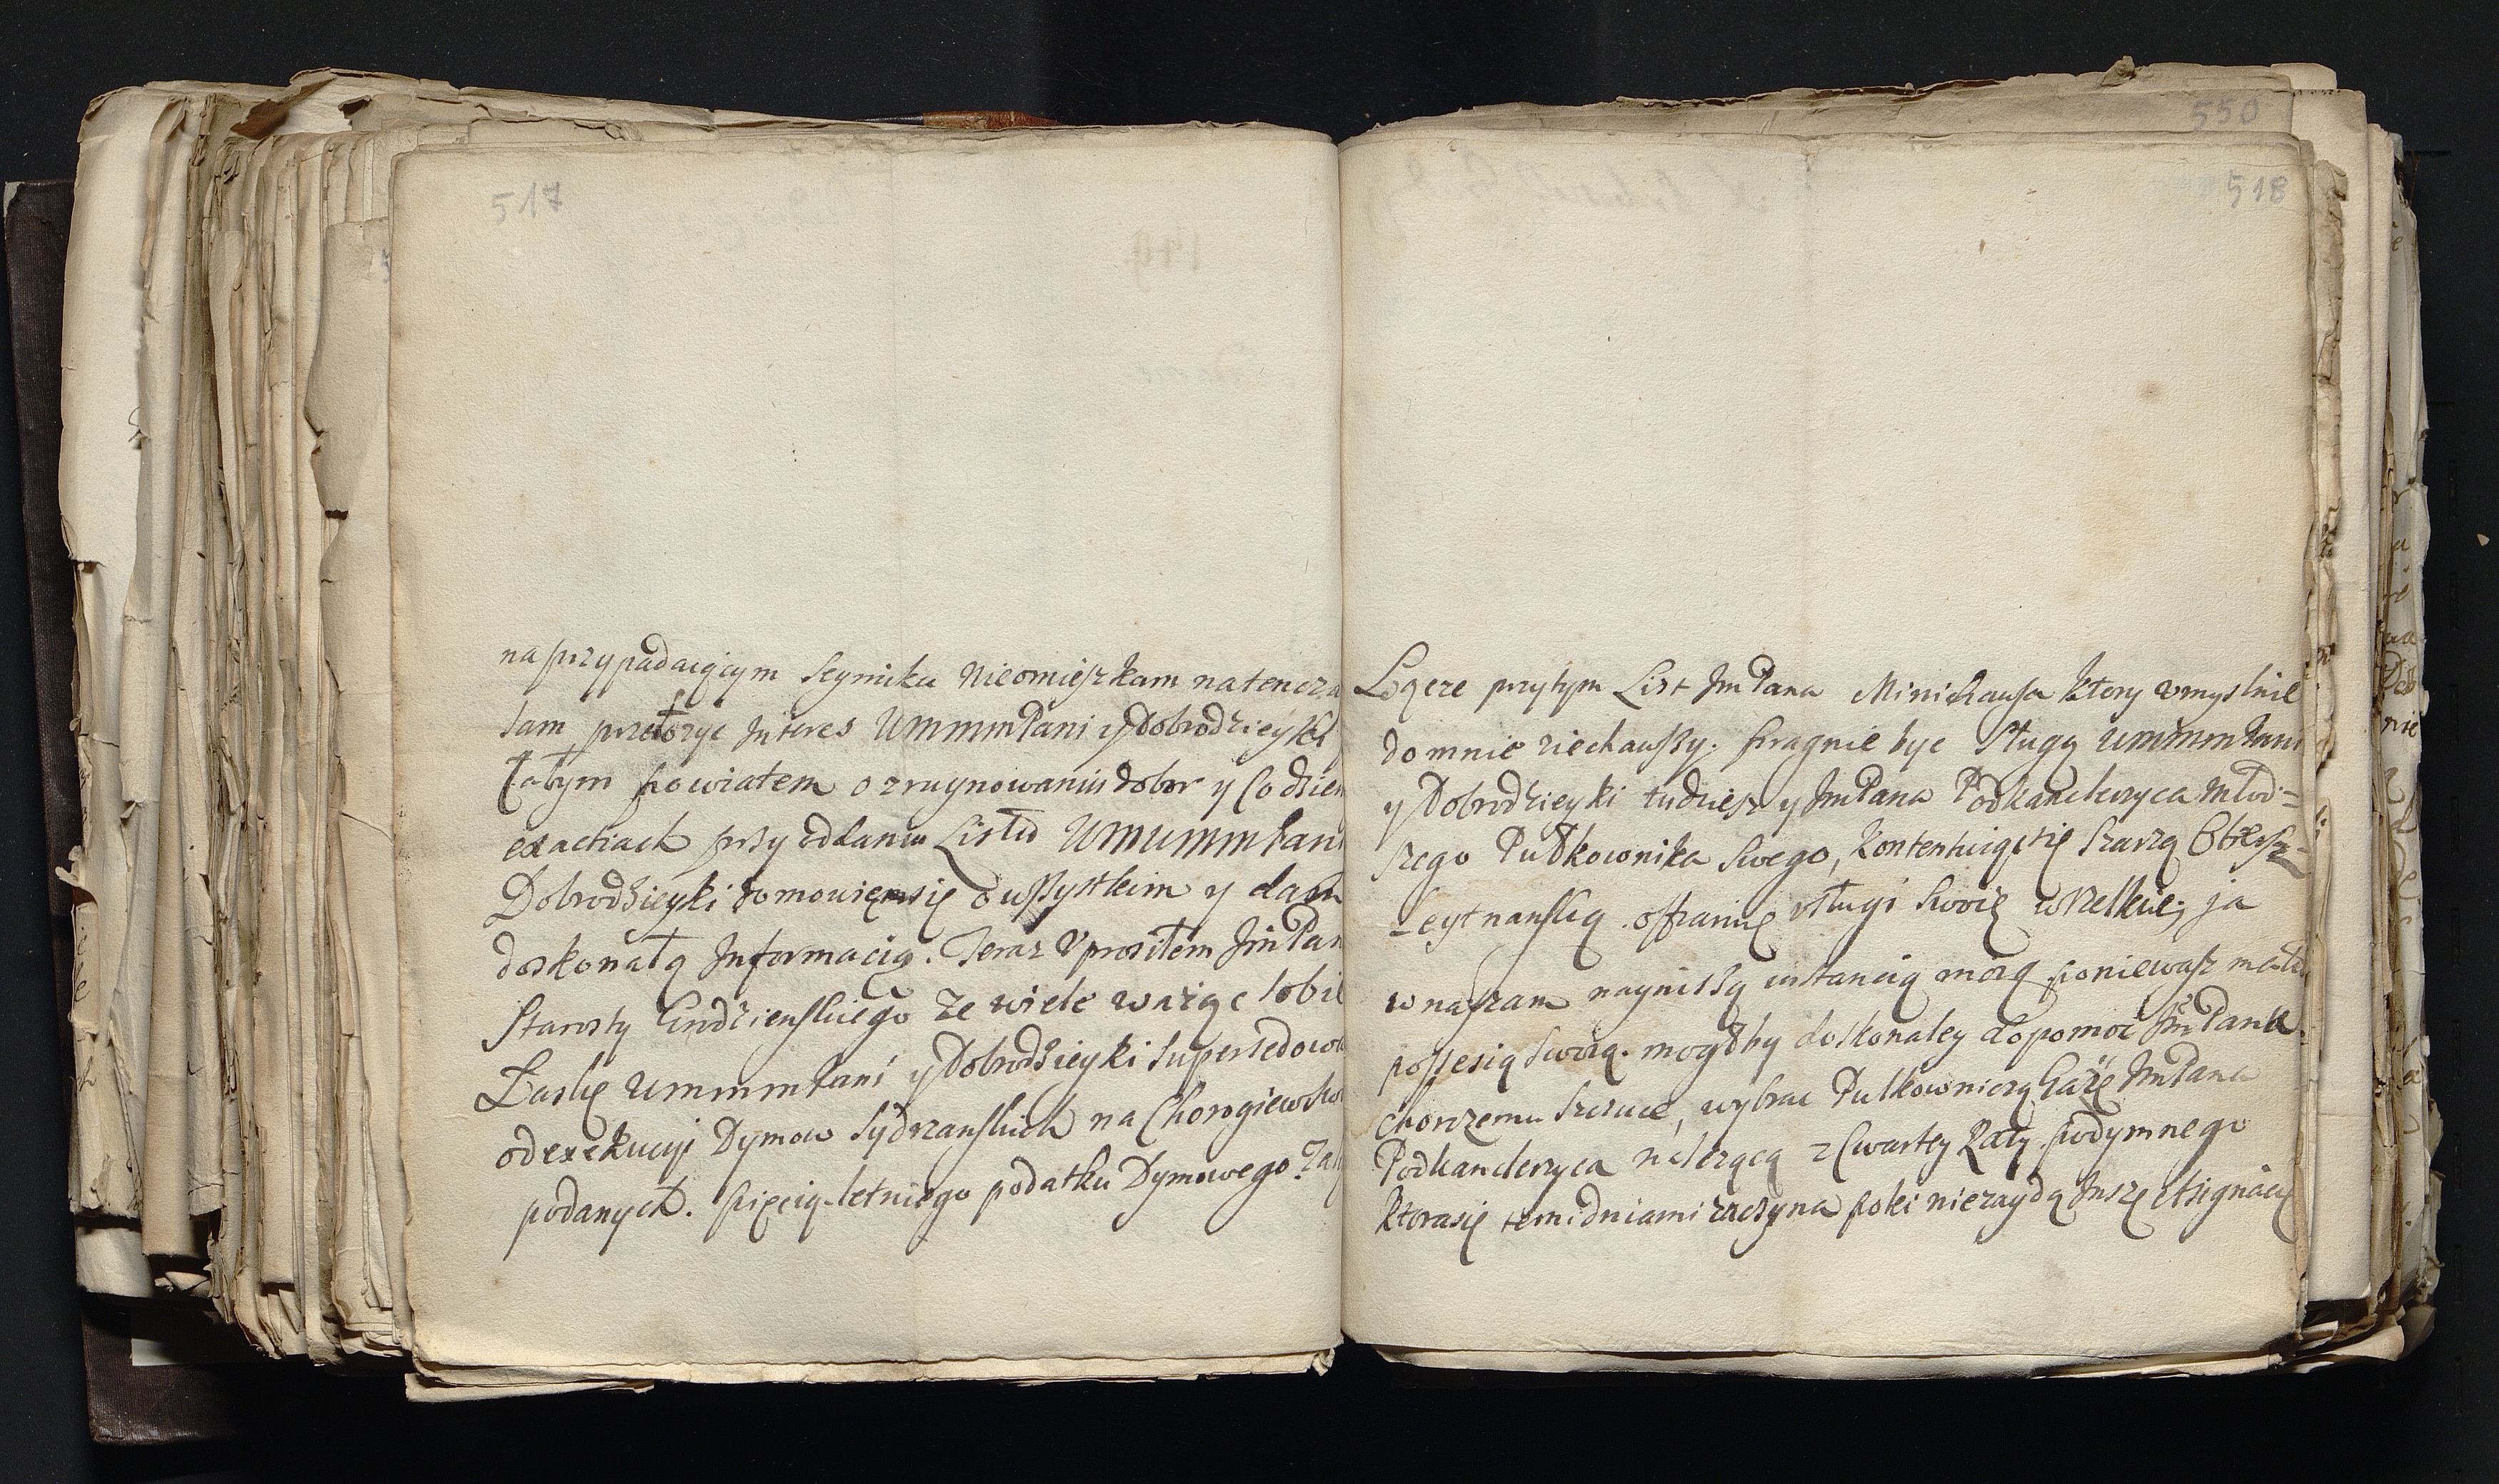 517
na przypadaiącym Seymiku nieomieszkam natencza
tam przełozyc Interes UmmmPani y Dobrodzieyki
Całym powiatem o zruynowaniu dobr y Codzien
exactiach przy oddaniu Listu UmummPani
Dobrodzieyki domowięmsię o wszystkim y dam
doskonałą Informacią. Teraz Uprosiłem JmPan
Starosty Grodzienskiego ze wiele waząc sobie
Laskę UmmmPani y Dobrodzieyki supersedowa
odexekucyi Dymow Sydrzanskich na Chorągiew
podanych. pięcią-letniego podatku Dymowego.
550
518
Łączę przytym List JmPana Minichausa ktory vmyslnie
do mnie ziechawszy. pragnie byc Sługą UmmmPani
y Dobrodzieyki tudziesz y JmPana Podkanclerzyca młod=
szego Pułkownika Swego, kontentuiącsię Szarzą
Leytnanską. offiaruię vsługi Swoię wszelkie; ja
wnaszam nayniszą instancią moią poniewasz
possesią Swoią. mogłby doskonaley dopomoc JmPanu
Chorzemu Szczuce, wybrac Pułkowniczą Gażę JmPana
Podkanclerzyca nalezącą z Cwartey Raty podymnego
ktorasię temi dniami zaczyna poki niezaydą Insze Assignacye